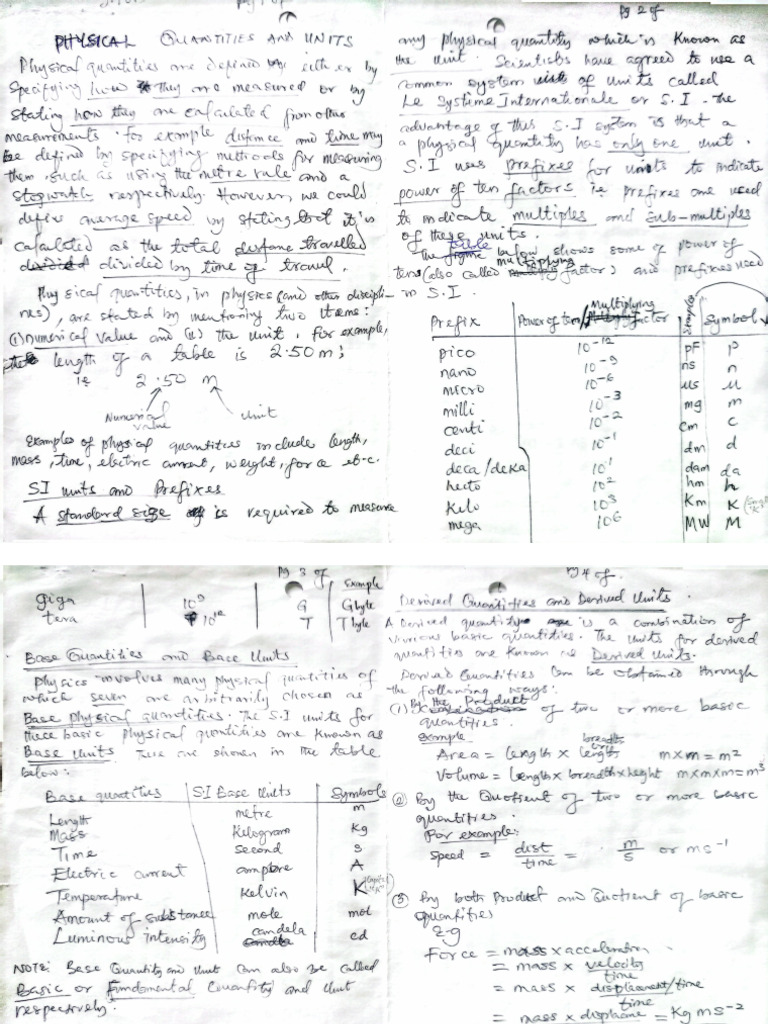 PHYSICAL QUANTITIES AND UNITS
Physical quantities are defined by either by
specifying how they are measured or by
stating how they are calculated from other
measurements. for example distance and time may
be defined by specifying methods for measuring
them, such as using the metre rule and a
stopwatch respectively. However, we could
define average speed by stating that it is
calculated as the total distance travelled
divided by time of travel.
Physical quantities, in physics (and other discipli-
nes), are stated by mentioning two items:
(i) numerical value and (ii) the unit. for example,
the length of a table is 2.50 m;
ie 2.50 m
Numerical value
Unit
Examples of physical quantities include length,
mass, time, electric current, weight, force etc.
SI units and Prefixes
A standard size is required to measure
Pg 2 of
any physical quantity which is known as
the unit. Scientists have agreed to use a
common system of units called
Le Systeme Internationale or S.I. The
advantage of this S.I system is that a
a physical quantity has only one unit.
S.I uses prefixes for units to indicate
power of ten factors i.e prefixes are used
to indicate multiples and sub-multiples
of these units.
The table below shows some of power of
ten (also called multiplying factor) and prefixes used
in S.I.
Prefix Power of ten/Multiplying factor Example Symbol
pico 10-12 pF p
nano 10-9 ns n
micro 10-6 µs µ
milli 10-3 mg m
centi 10-2 cm c
deci 10-1 dm d
deca/deka 10¹ dam da
hecto 10² hm h
kilo 10³ Km K
mega 10⁶ MW M
Pg 3 of
Example
giga 10⁹ G Gbyte
tera 10¹² T Tbyte
Base Quantities and Base Units
Physics involves many physical quantities of
which seven are arbitrarily chosen as
Base physical quantities. The S.I units for
these basic physical quantities are known as
Base Units. These are shown in the table
below:
Base quantities S.I Base Units Symbols
Length metre m
Mass Kelogram Kg
Time second s
Electric current ampere A
Temperature Kelvin K
Amount of substance mole mol
Luminous intensity candela cd
NOTE: Base Quantity and Unit can also be called
Basic or Fundamental Quantity and Unit
respectively.
Pg 4 of
Derived Quantities and Derived Units.
A Derived quantity is a combination of
various basic quantities. The units for derived
quantities are known as Derived Units.
Derived Quantities can be obtained through
the following ways:
(1) By the Product of two or more basic
quantities.
Example
Area = length x breadth m x m = m²
Volume = length x breadth x height m x m x m = m³
(2) By the Quotient of two or more basic
quantities.
For example:
Speed = dist/time = m/s or ms-1
(3) By both Product and Quotient of basic
quantities
E.g
Force = mass x acceleration
= mass x velocity/time
= mass x displacement/time
time
= mass x displace = Kg ms-2